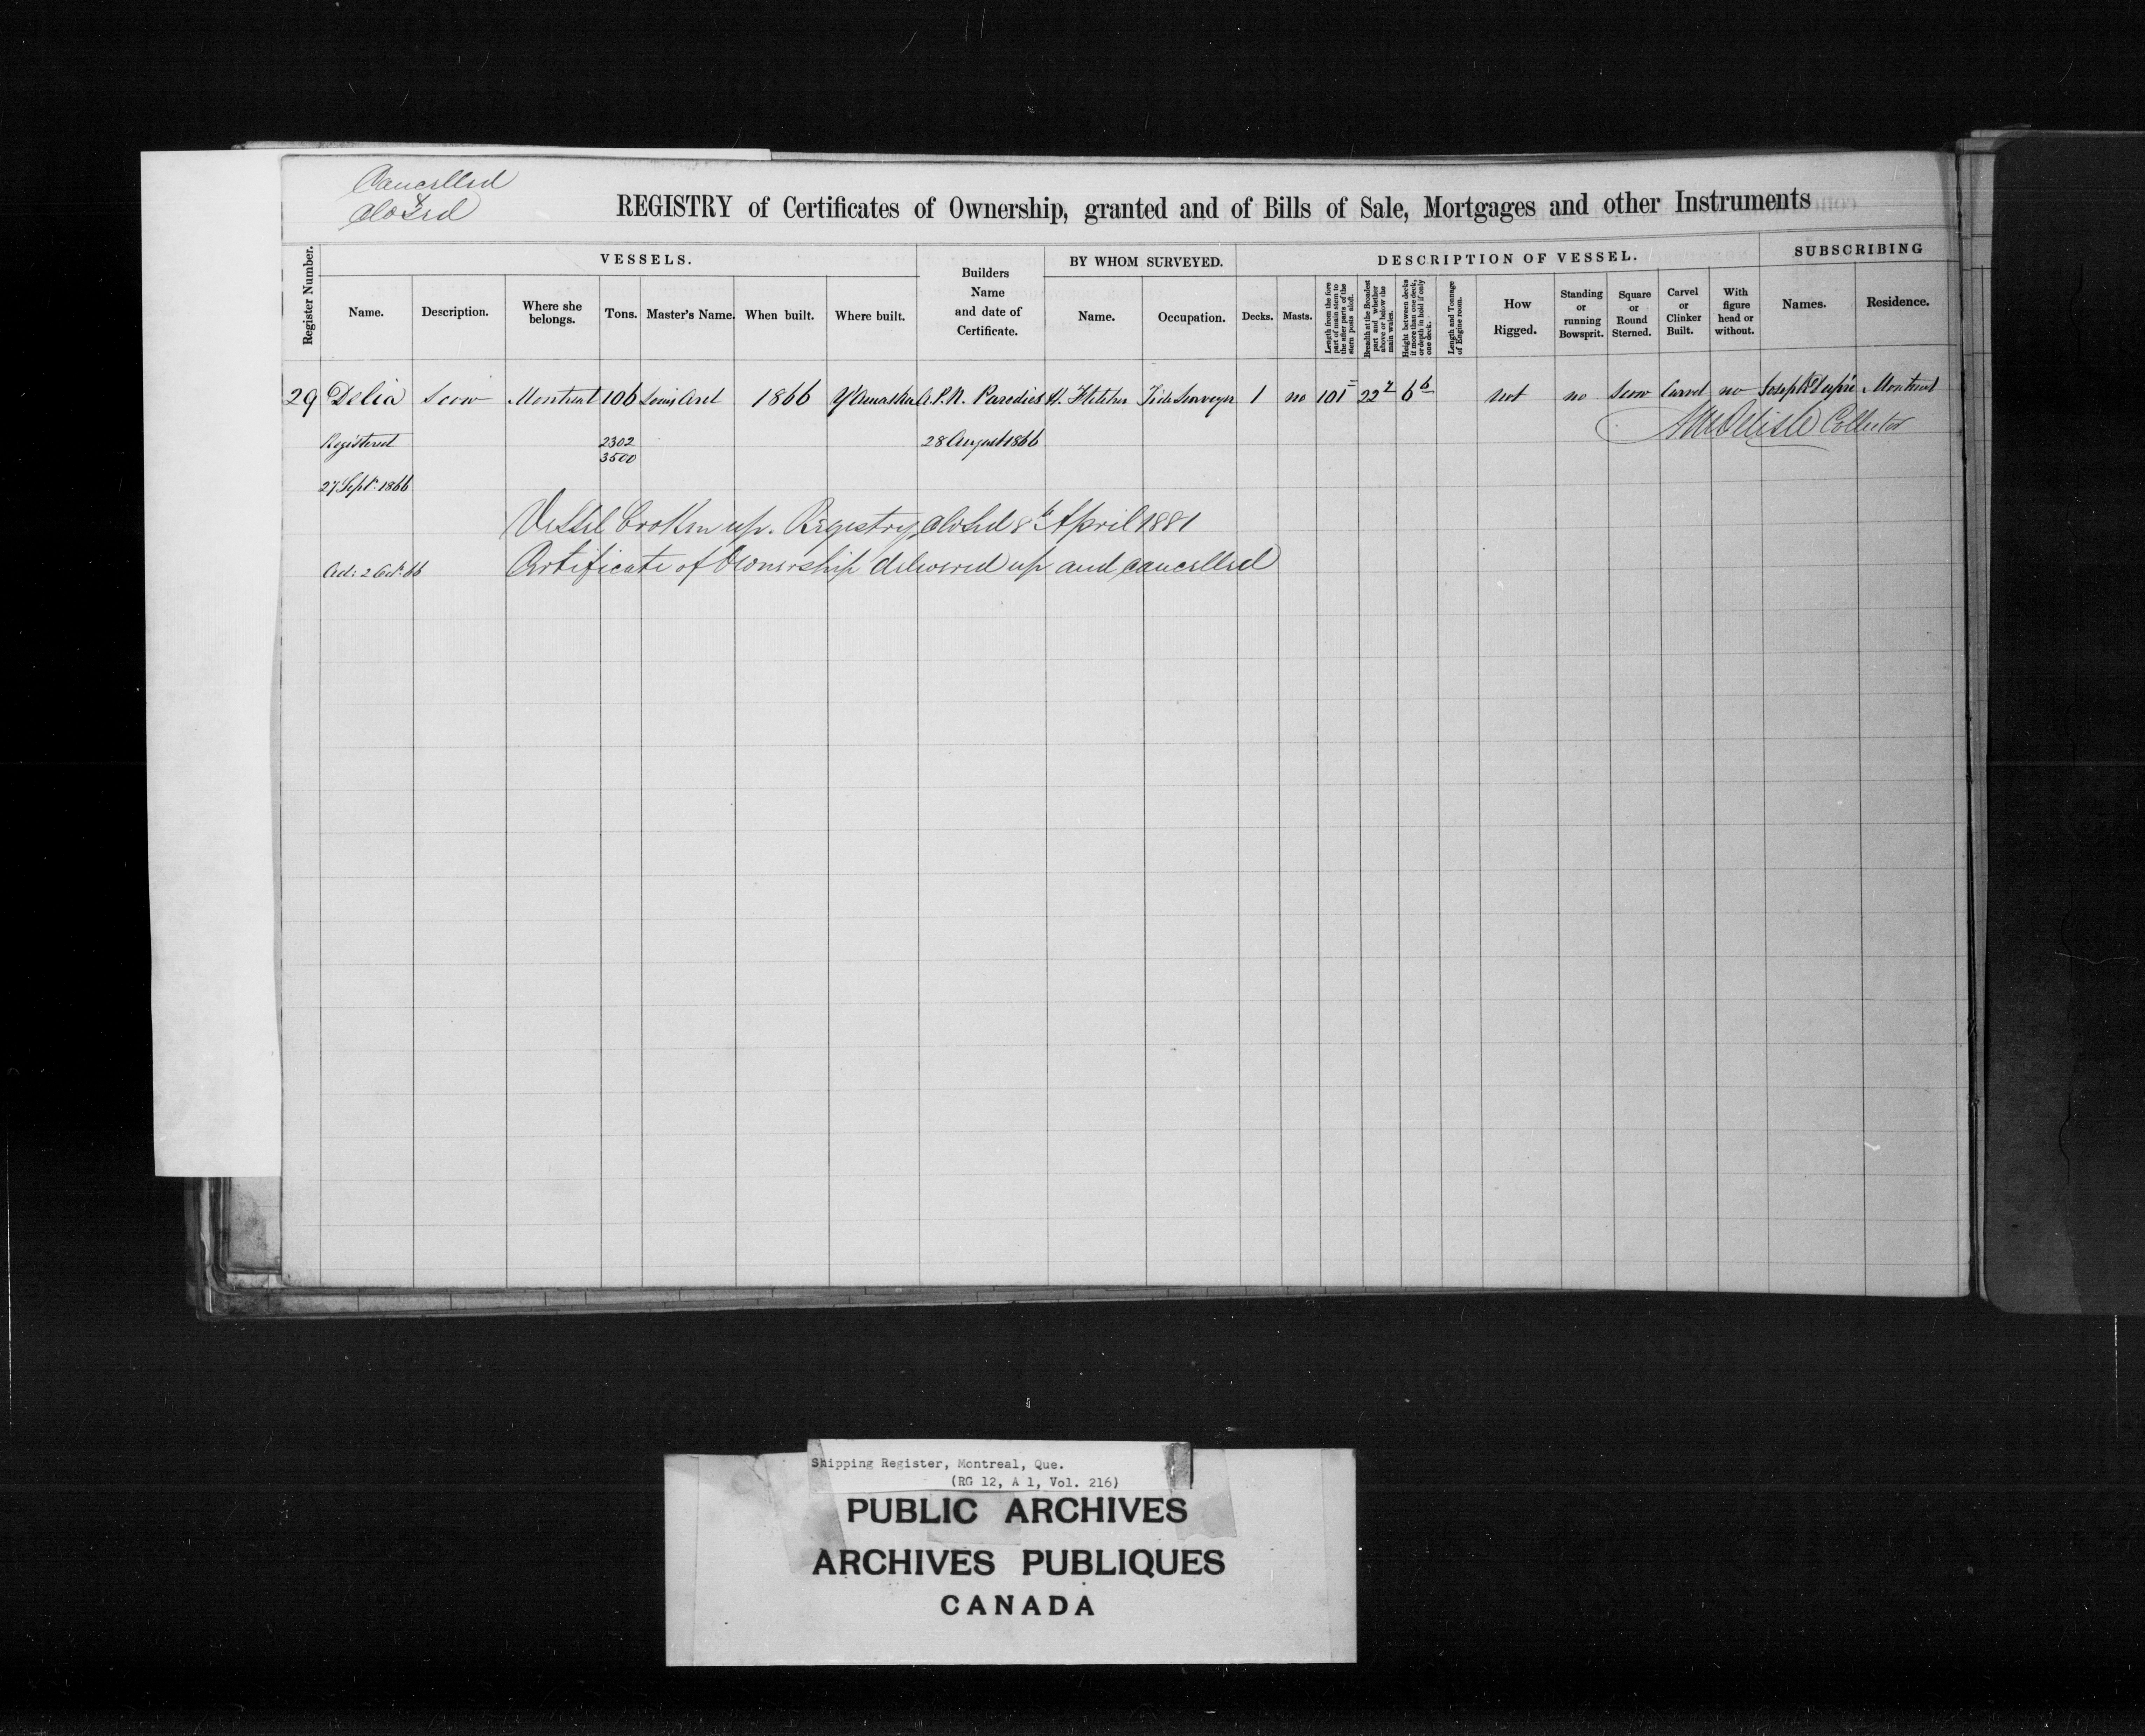 Cancelled
&
Closed
REGISTRY of Certificates of Ownership, granted and of Bills of Sale, Mortgages and other Instruments
Register Number.
VESSELS.
Builders Name and date of Certificate.
BY WHOM SURVEYED.
DESCRIPTION OF VESSEL.
SUBSCRIBING
Name. Description. Where she belongs. Tons. Master's Name. When built. Where built. Name. Occupation. Decks. Masts. Length from the fore part of main stem to the after parts of the stern posts aloft. Breadth at the Broadest part and whether above or below the main wales. Height between decks if more than one deck, or depth in hold if only one deck. Length and Tonnage of Engine room. How Rigged. Standing or running Bowsprit. Square or Round Sterned. Carvel or Clinker Built. With figure head or without. Names. Residence.
29 Delia Scow Montreal 106 Louis Aret 1866 Yamaska A.P.N. Paredies H. Fletcher Tide Surveyor 1 no 101 22 6 6 not no Scow Carvel no Joseph Dupré Montreal
Delisle Collector
Registered 2302 28 August 1866
3500
27 Sept. 1866
Vessel broken up. Registry closed 8th April 1881
2 Oct. 66 Certificate of Ownership delivered up and cancelled
Shipping Register, Montreal, Que.
(RG 12, A 1, Vol. 216)
PUBLIC ARCHIVES
ARCHIVES PUBLIQUES
CANADA